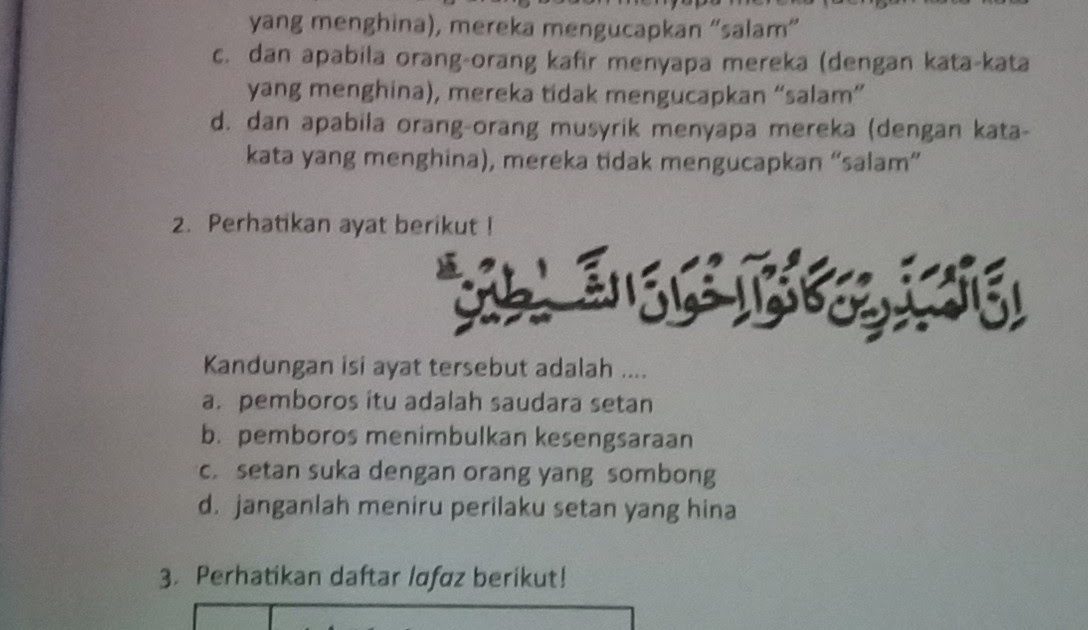 yang menghina), mereka mengucapkan "salam"
c. dan apabila orang-orang kafir menyapa mereka (dengan kata-kata
yang menghina), mereka tidak mengucapkan "salam"
d. dan apabila orang-orang musyrik menyapa mereka (dengan kata-
kata yang menghina), mereka tidak mengucapkan "salam"
2. Perhatikan ayat berikut !
اِنَّ الْمُبَذِّرِيْنَ كَانُوْٓا اِخْوَانَ الشَّيٰطِيْنِۗ
Kandungan isi ayat tersebut adalah ....
a. pemboros itu adalah saudara setan
b. pemboros menimbulkan kesengsaraan
c. setan suka dengan orang yang sombong
d. janganlah meniru perilaku setan yang hina
3. Perhatikan daftar lafaz berikut!